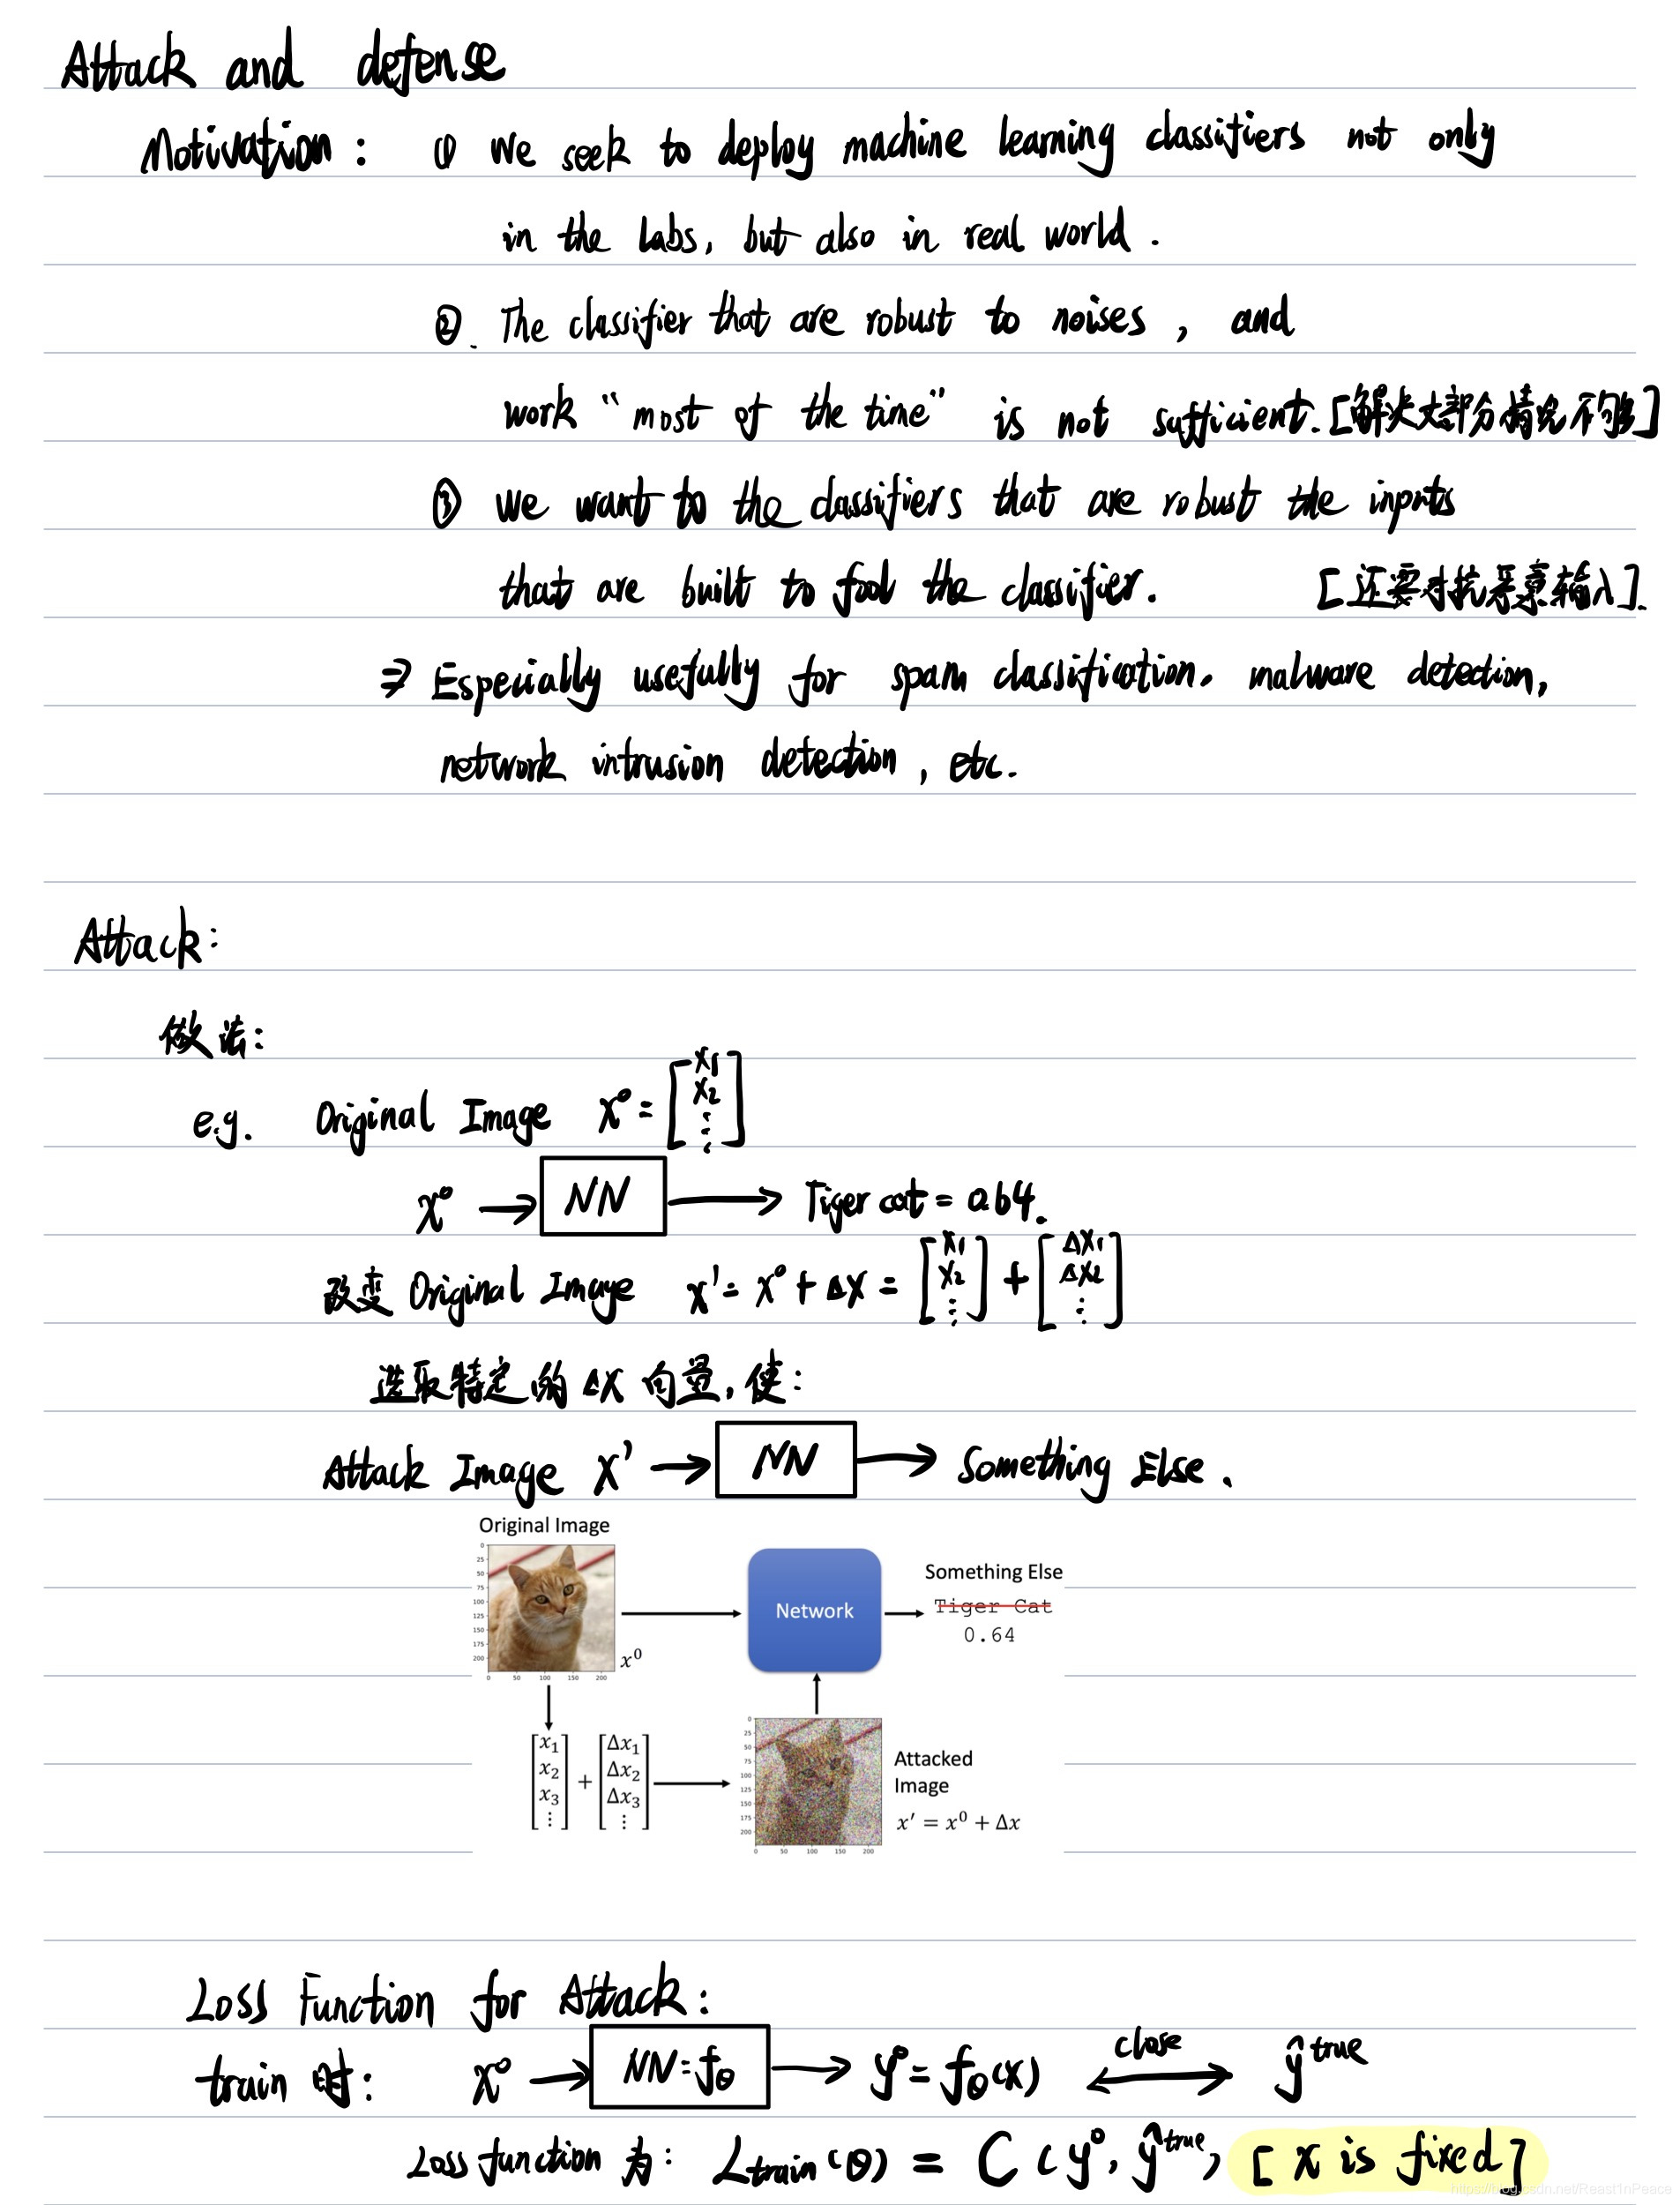 Attack and defense
Motivation: ① We seek to deploy machine learning classifiers not only
in the labs, but also in real world.
②. The classifier that are robust to noises, and
work “most of the time” is not sufficient. [解决大部分情况不够]
③ We want to the classifiers that are robust the inputs
that are built to fool the classifier. [还要对抗恶意输入].
⇒ Especially usefully for spam classification, malware detection,
network intrusion detection, etc.
Attack:
做法:
e.g. Original Image x⁰ = [x₁ x₂ ⋮]
x⁰ → NN → Tiger cat = 0.64.
改变 Original Image x' = x⁰ + Δx = [x₁ x₂ ⋮] + [Δx₁ Δx₂ ⋮]
选取特定的 Δx 向量, 使:
Attack Image x' → NN → Something Else.
Original Image
0 25 50 75 100 125 150 175 200
0 50 100 150 200
x⁰
Network
Something Else
Tiger Cat
0.64
[x₁ x₂ x₃ ⋮] + [Δx₁ Δx₂ Δx₃ ⋮]
0 25 50 75 100 125 150 175 200
0 50 100 150 200
Attacked
Image
x′ = x⁰ + Δx
Loss Function for Attack:
train 时: x⁰ → NN = fθ → y⁰ = fθ(x) ←close→ ŷ^true
Loss function 为: Ltrain(θ) = C(y⁰, ŷ^true) [x is fixed]
https://blog.csdn.net/Reast1nPeace